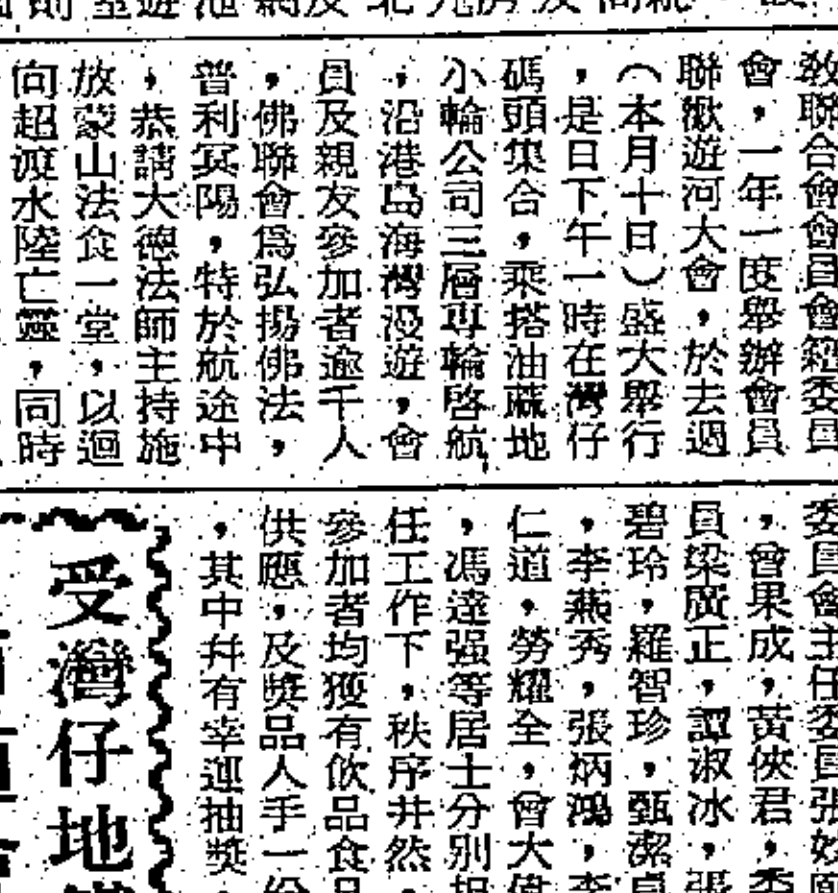 教聯合會會員會籍委員
會，一年一度舉辦會員
聯歡遊河大會，於去週
（本月十日）盛大舉行
，是日下午一時在灣仔
碼頭集合，乘搭油蔴地
小輪公司三層專輪啓航
，沿港島海灣漫遊，會
員及親友參加者逾千人
，佛聯會爲弘揚佛法，
普利冥陽，特於航途中
，恭請大德法師主持施
放蒙山法食一堂，以迴
向超渡水陸亡靈，同時
委員會主任委員張妙
，會果成，黃俠君，委
員梁廣正，譚淑冰，張
碧玲，羅智珍，甄潔
，李燕秀，張炳鴻，李
仁道，勞耀全，會大偉
，馮達强等居士分别担
任工作下，秩序井然
參加者均獲有飲品食品
供應，及獎品人手一份
，其中幷有幸運抽獎，
受灣仔地